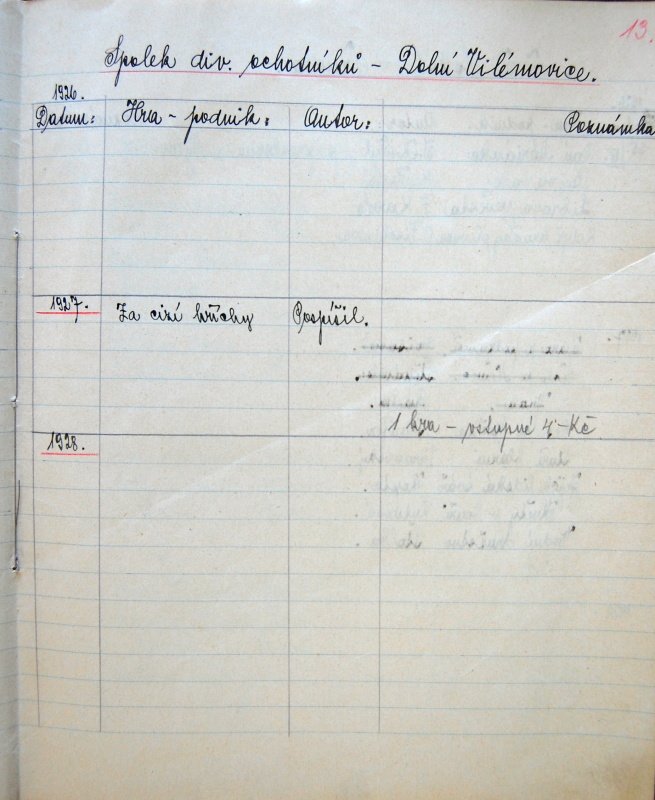 13.
Spolek div. ochotníků - Dolní Vilémovice.
1926.
Datum: Hra - podnik: Autor: Poznámka
1927. Za cizí hříchy Pospíšil.
1 hra - vstupné 4,- Kč
1928.